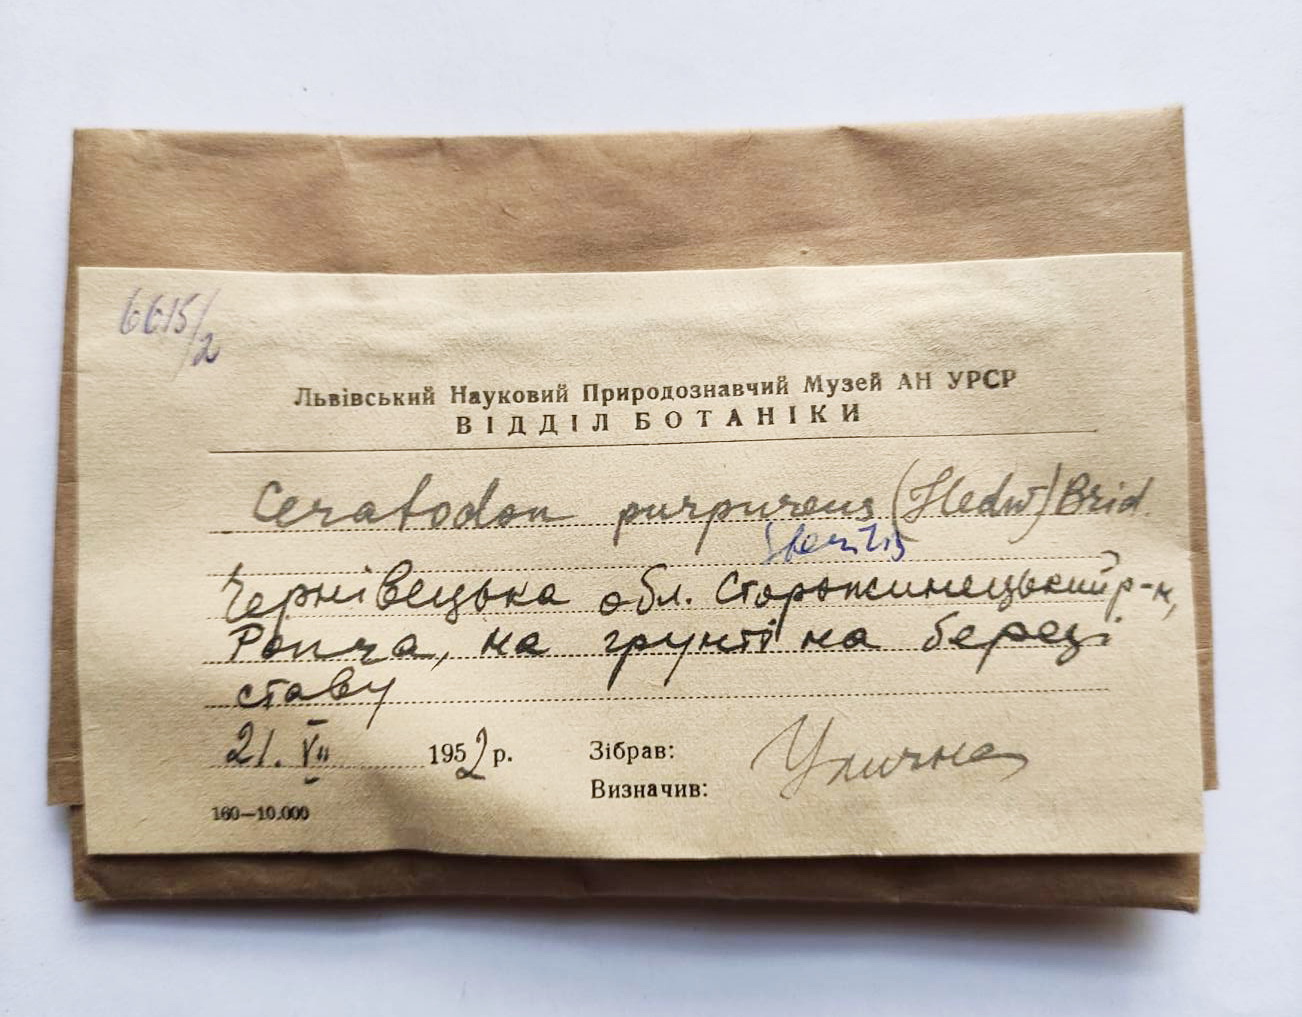 6615/2
Львівський Науковий Природознавчий Музей АН УРСР
ВІДДІЛ БОТАНІКИ
Ceratodon purpureus (Hedw) Brid.
Sterilis
Чернівецька обл. Сторожинецький р-н,
Ропча, на грунті на березі
ставу
21. VII 1952 р.
Зібрав: Улична
Визначив:
160—10.000